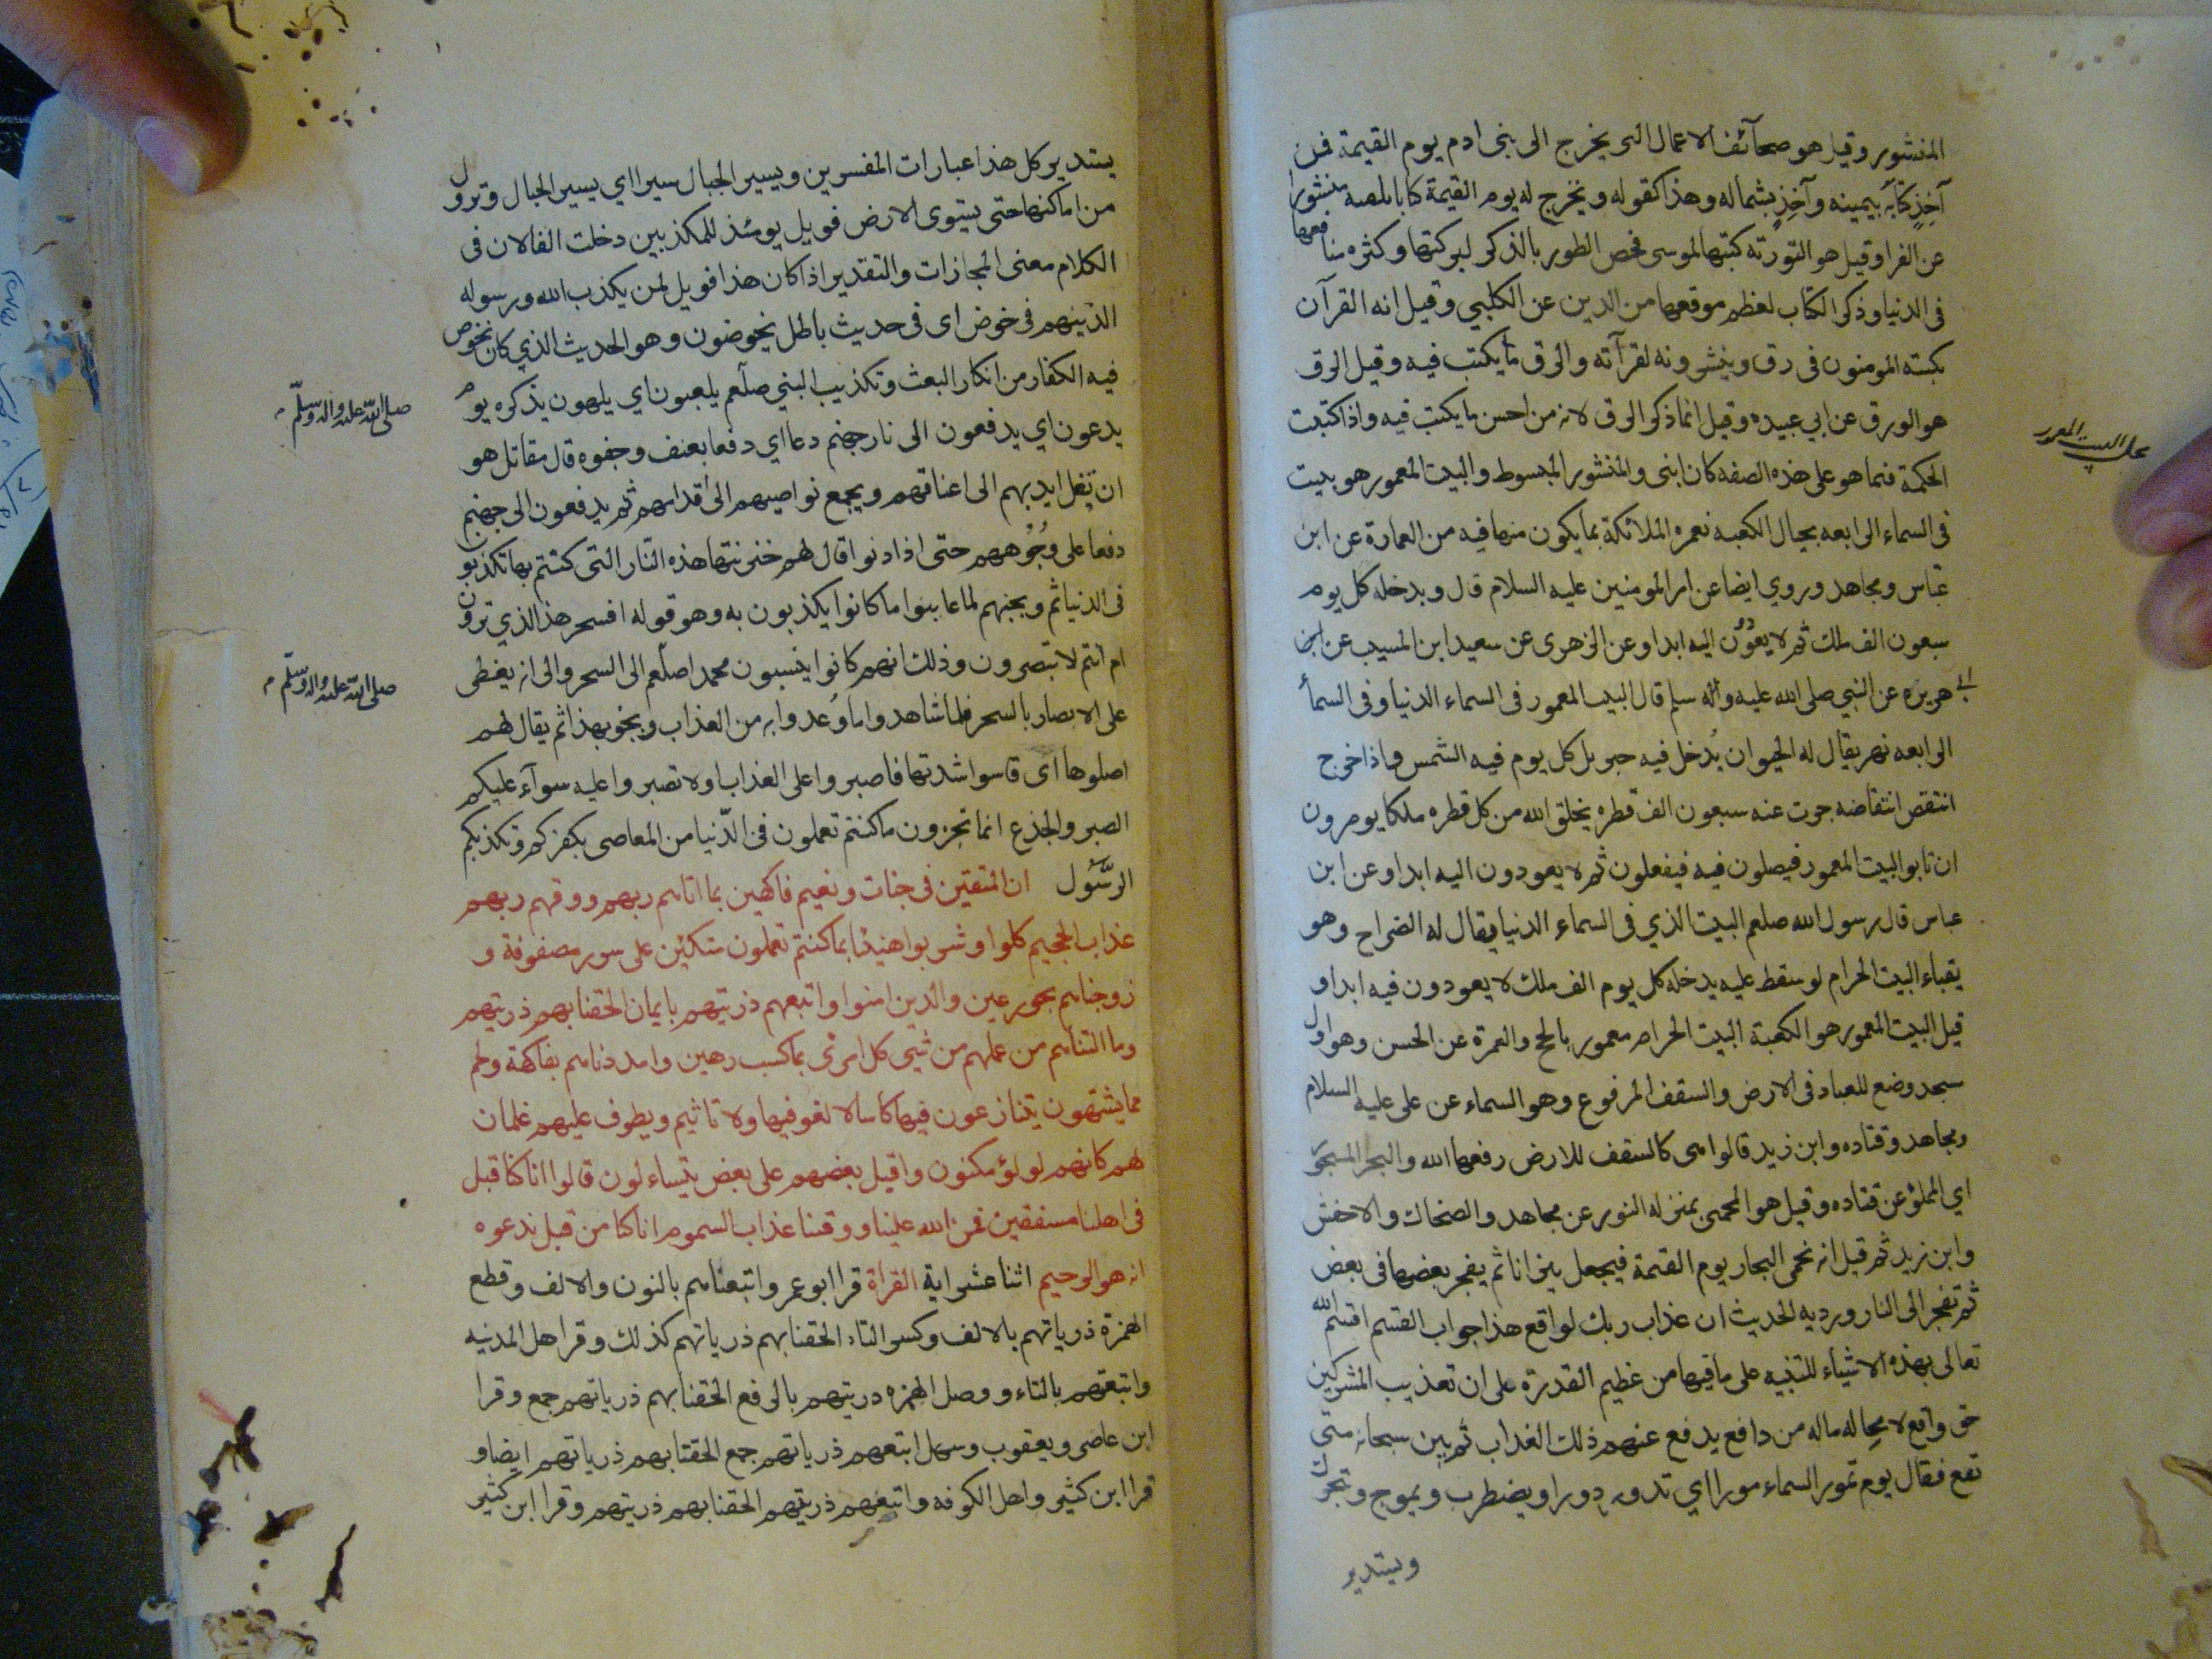 المنشور وقيل هو صحآئف الاعمال التى يخرج الى بنى ادم يوم القيمة فمن
آخِذٍ كتابَه بيمينه وآخِذٍ بشماله وهذا كقوله ونخرج له يوم القيمة كتابا يلقيه منشورا
عن الفرا وقيل هو التورته كتبها لموسى فخص الطور بالذكر لبركتها وكثره منافعها
فى الدنيا وذكر الكتاب لعظم موقعها من الدين عن الكلبي وقيل انه القرآن
يكتبه المومنون فى رق وينشرونه لقرآته والرق ما يكتب فيه وقيل الرق
هو الورق عن ابي عبيده وقيل انما ذكر الرق لانه من احسن ما يكتب فيه واذا كتبت
الحكمة فيما هو على هذه الصفه كان ابنى والمنشور المبسوط والبيت المعمور هو بيت
فى السماء الرابعه بحيال الكعبه تعمره الملائكة بما يكون منها فيه من العمارة عن ابن
عباس ومجاهد وروي ايضا عن امر المومنين عليه السلام قال ويدخله كل يوم
سبعون الف ملك ثم لا يعودُن اليه ابدا وعن الزهرى عن سعيد ابن المسيب عن ابى
هريره عن النبي صلى الله عليه وآله سلم قال البيت المعمور فى السماء الدنيا وفى السمآ
الرابعه نهر يقال له الحيوان يُدخل فيه جبريل كل يوم فيه الشمس واذا خرج
انتقض انتقاضه جرت عنه سبعون الف قطره يخلق الله من كل قطره ملكا يومرون
ان تابوا البيت المعمور فيصلون فيه فيفعلون ثم لا يعودون اليه ابدا وعن ابن
عباس قال رسول الله صلعم البيت الذي فى السماء الدنيا يقال له الضراح وهو
بقباء البيت الحرام لو سقط عليه يدخله كل يوم الف ملك لا يعودون فيه ابدا و
قيل البيت المعمور هو الكعبة البيت الحرام معمور بالحج والعمرة عن الحسن وهو اول
مسجد وضع للعباد فى الارض والسقف المرفوع وهو السماء عن على عليه السلام
ومجاهد وقتاده وابن زيد قالوا هى كالسقف للارض رفعها الله والبحر المسجور
اي المملؤ عن قتاده وقيل هو المحمى بمنزله التنور عن مجاهد والضحاك والاخفش
وابن زيد ثم قيل انه تحمى البحار يوم القيمة فيجعل نيرانا ثم يفجر بعضها فى بعض
ثم تفجر الى النار ورد به الحديث ان عذاب ربك لواقع هذا جواب القسم اقسم الله
تعالى بهذه الاشياء للتنبيه على ما فيها من عظيم القدرة على ان تعذيب المشركين
حق واقع لا محاله ماله من دافع يدفع عنهم ذلك العذاب ثم بين سبحانه متى
تقع فقال يوم تمور السماء مورا اي تدور دورا ويضطرب ويموج وتتحرك
ويستدير
يستدير كل هذا عبارات المفسرين ويسير الجبال سيرا اي يسير الجبال وتزول
من اماكنها حتى يستوى الارض فويل يومئذ للمكذبين دخلت الفالان فى
الكلام معنى المجازات والتقدير اذا كان هذا فويل لمن يكذب الله ورسوله
الذينهم فى خوض اى فى حديث باطل يخوضون وهو الحديث الذي كان يخوض
فيه الكفار من انكار البعث وتكذيب النبي صلّعم يلعبون اي يلهون بذكره يوم
صلى الله عليه واله وسلم
يدعون اي يدفعون الى نار جهنم دعا اي دفعا بعنف وجفوه قال مقاتل هو
ان تغل ايديهم الى اعناقهم ويجمع نواصيهم الى اقدامهم ثم يدفعون الى جهنم
دفعا على وُجُوههم حتى اذا دنوا قال لهم خزنتها هذه النار التى كنتم بها تكذبون
فى الدنيا ثم وبخهم لما عاينوا ما كانوا يكذبون به وهو قوله افسحر هذا الذي ترون
ام انتم لا تبصرون وذلك انهم كانوا ينسبون محمدا صلّعم الى السحر والى انه يغطى
صلى الله عليه واله وسلم
على الابصار بالسحر فلما شاهدوا ما وُعدوا به من العذاب وبخوا بهذا ثم يقال لهم
اصلوها اى قاسوا شدتها فاصبروا على العذاب اولا تصبروا عليه سوآء عليكم
الصبر والجذع انما تجزون ما كنتم تعملون فى الدّنيا من المعاصى بكفركم وتكذيبكم
الرسُول ان المتقين فى جنات ونعيم فاكهين بما اتاهم ربهم ووقهم ربهم
عذاب الجحيم كلوا وشربوا هنيئا بما كنتم تعملون متكئين على سرر مصفوفة و
زوجناهم بحور عين والذين امنوا واتبعهم ذريتهم بايمان الحقنا بهم ذريتهم
وما التناهم من عملهم من شىء كل امرئ بما كسب رهين وامددناهم بفاكهة ولحم
مما يشتهون يتنازعون فيها كاسا لا لغو فيها ولا تاثيم ويطوف عليهم غلمان
لهم كانهم لولؤ مكنون واقبل بعضهم على بعض يتساءلون قالوا انا كنا قبل
فى اهلنا مشفقين فمن الله علينا ووقنا عذاب السموم انا كنا من قبل ندعوه
انه هو الرحيم اثنا عشر اية القراة قرا ابو عمرو واتبعناهم بالنون والالف وقطع
الهمزة ذرياتهم بالالف وكسر التاء الحقنا بهم ذرياتهم كذلك وقرا هل المدنيه
واتبعتهم بالتاء ووصل الهمزه ذريتهم بالرفع الحقنا بهم ذرياتهم جمع وقرا
ابن عامر ويعقوب وسهل اتبعهم ذرياتهم جمع الحقنا بهم ذرياتهم ايضا و
قرا ابن كثير واهل الكوفه واتبعهم ذريتهم الحقنا بهم ذريتهم وقرا ابن كثير